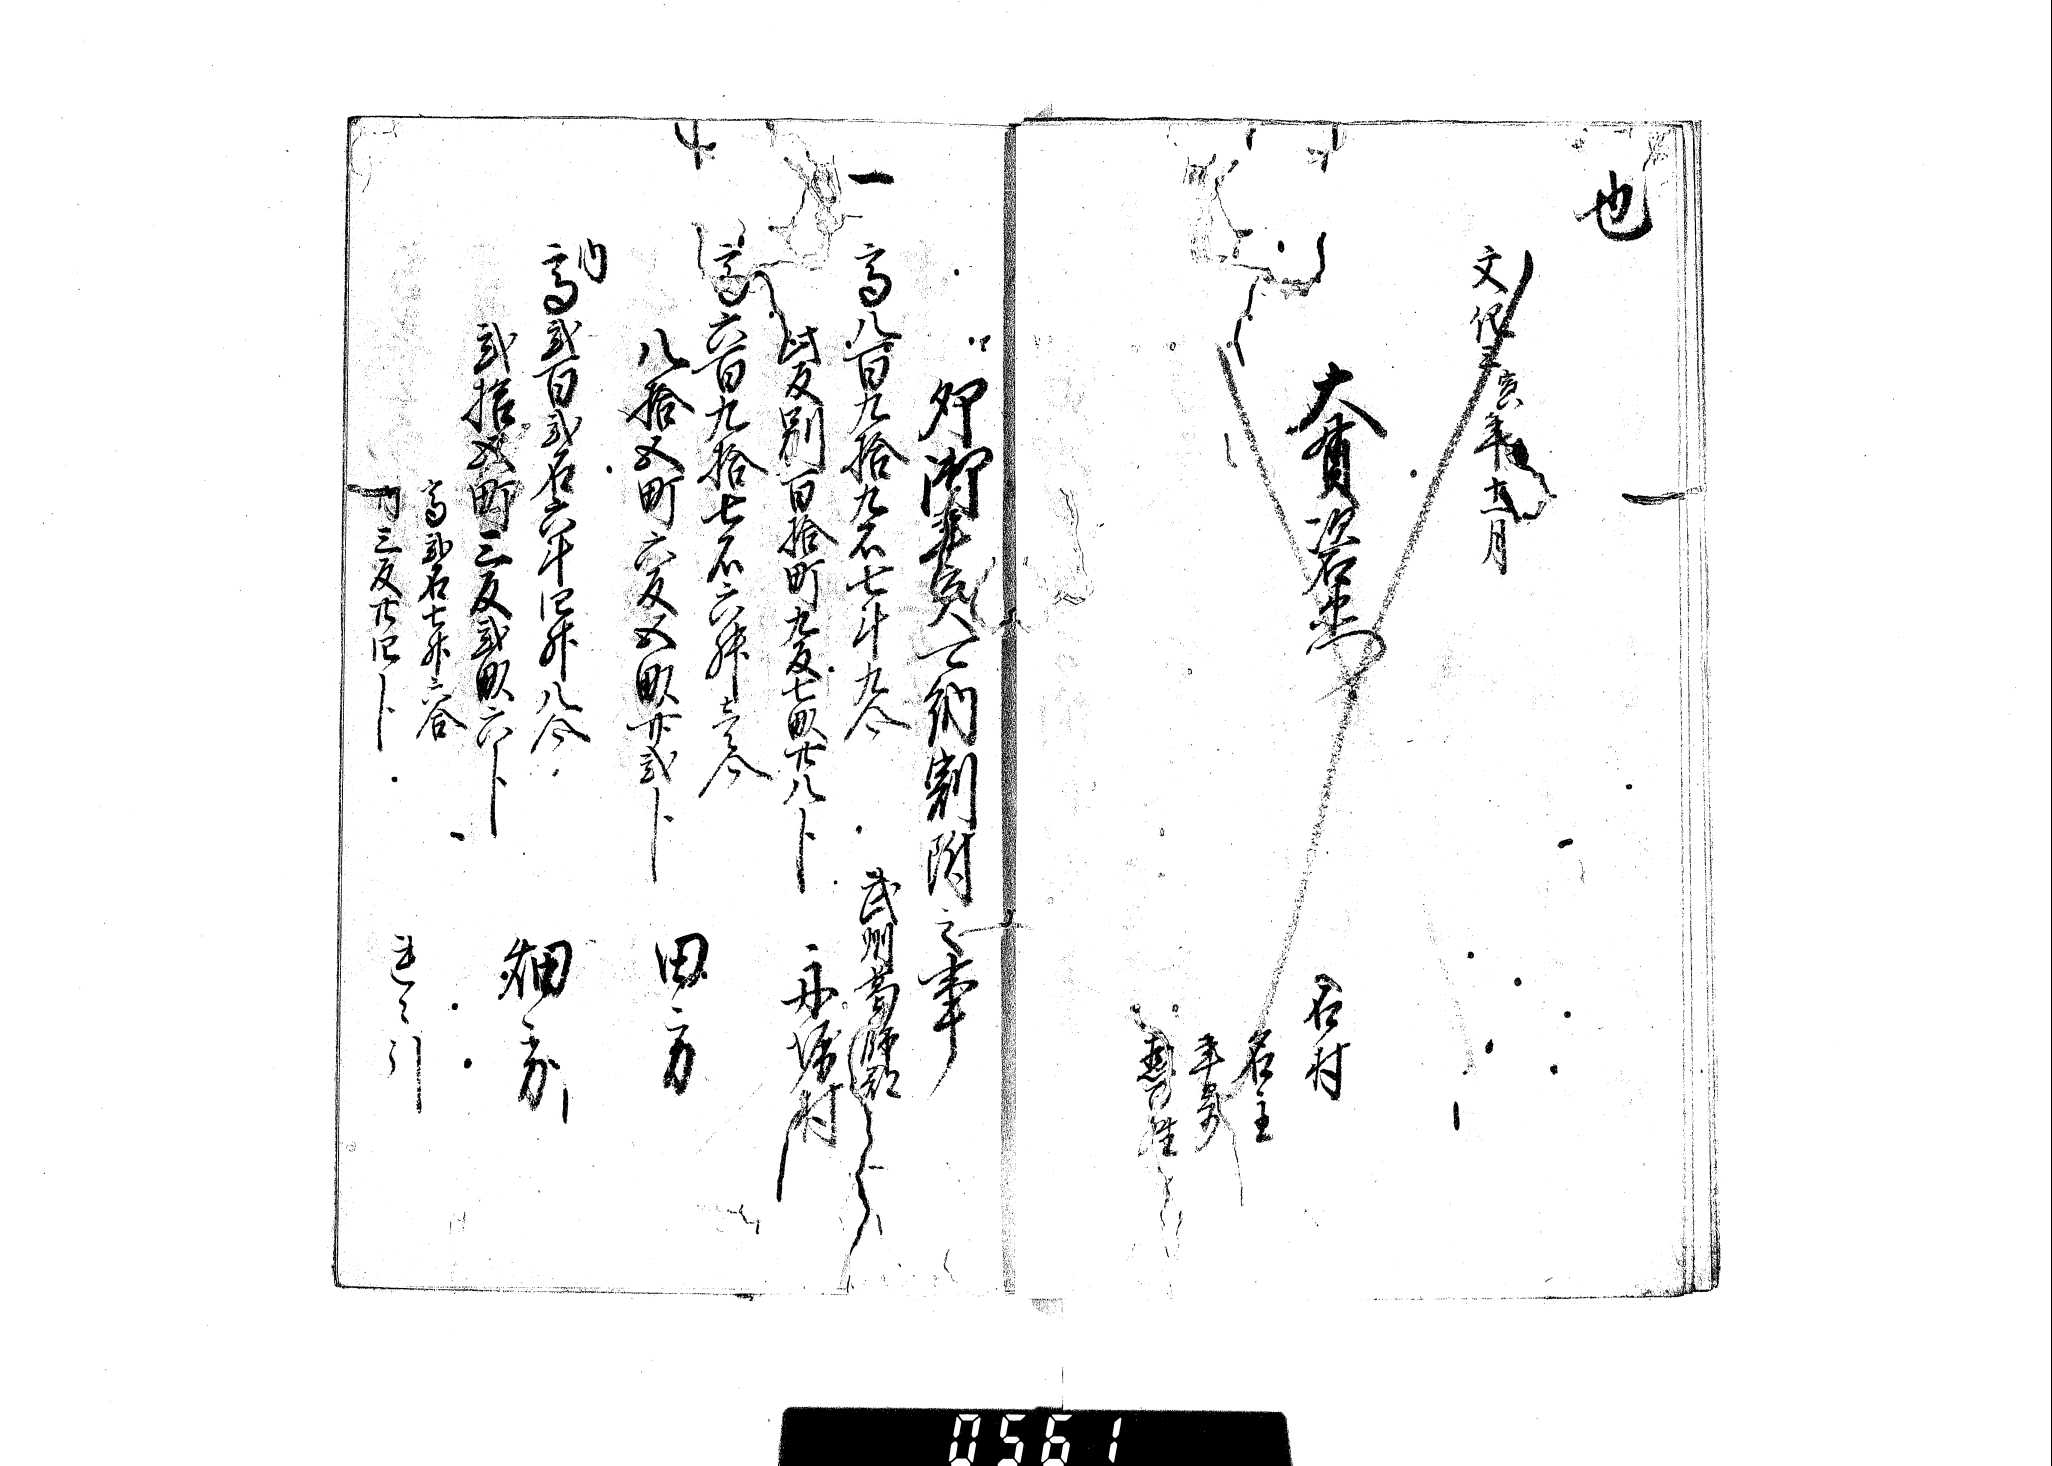 也
文化三寅年十一月
大貫次右衛門
右村
名主
年寄
惣百姓
卯御年貢可納割附之事
武州葛飾郡
一 高八百九拾九石七斗九合
舟堀村
此反別百拾町九反七畝廿八卜
高六百九拾七石六升壱合
八拾五町六反五畝廿弐卜 田方
内
高弐百弐石六斗四升八合
弐拾五町三反弐畝六卜 畑方
高弐石七升六合
内三反廿四卜 連々引
0561